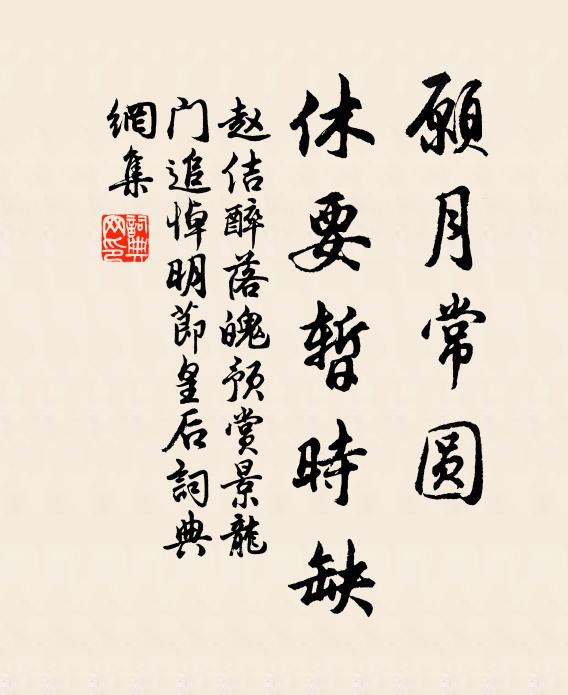 願月常圆
休要暫時缺
赵佶醉落魄预赏景龍
门追悼明節皇后詞典
網集
詞典网印